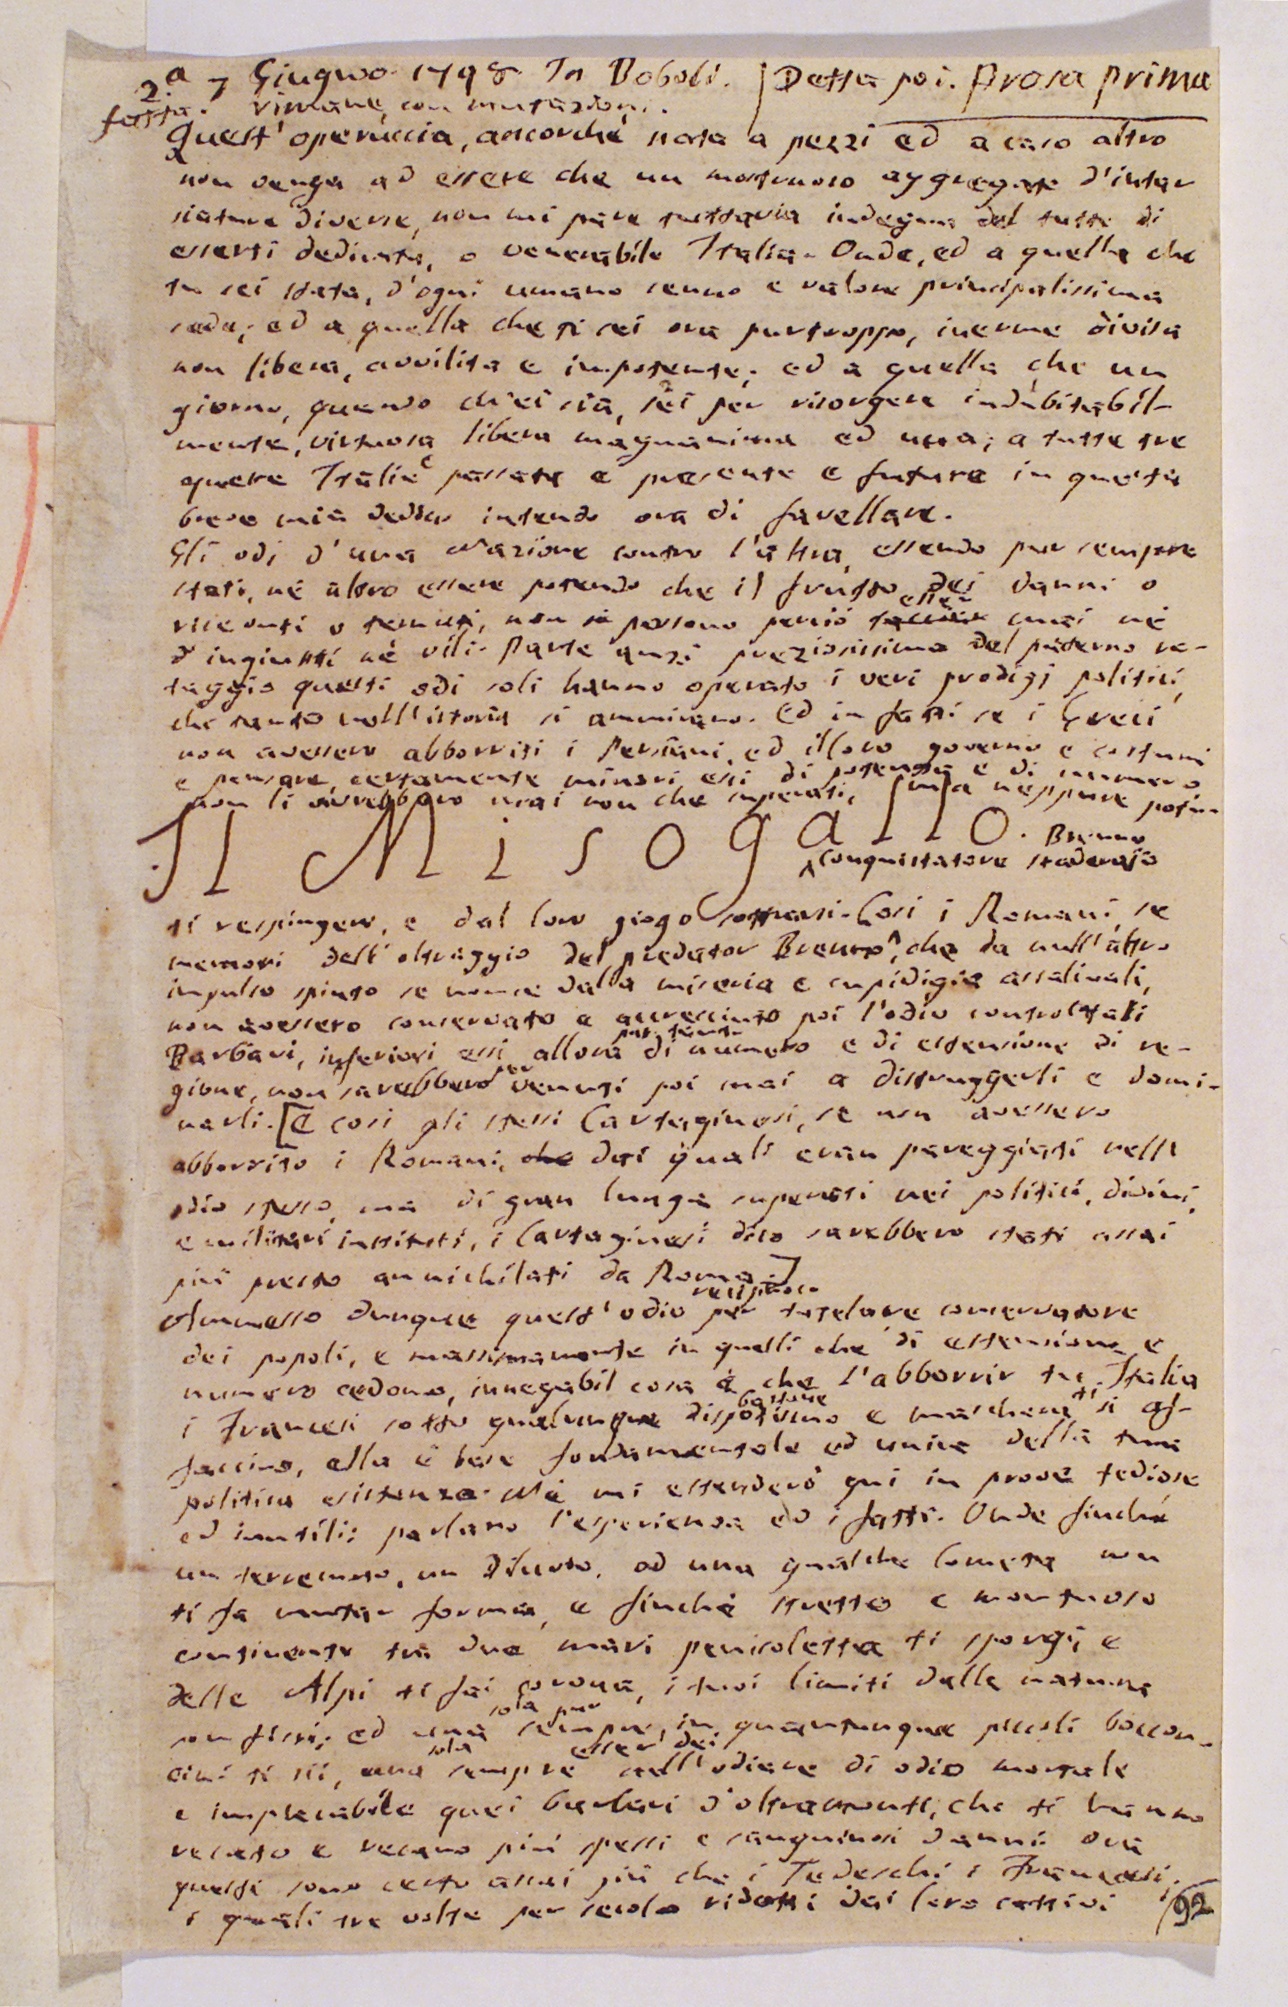 2.a 7 Giugno 1798 In Boboli. Detta poi. Prosa prima
rimane, con mutazioni.
Quest'operuccia, ancorchè nata a pezzi ed a caso altro
non venga ad essere che un mostruoso aggregato d'intar
siature diverse, non mi pare tuttavia indegna del tutto di
esserti dedicata, o venerabile Italia. Onde, ed a quella che
tu sei stata, d'ogni umano senno e valore principalissima
sede; ed a quella che ti sei ora purtroppo, inerme divisa
non libera, avvilita e impotente; ed a quella che un
giorno, quando ch'ei sia, sei per risorgere indubitabil-
mente, virtuosa libera magnanima ed una; a tutte tre
queste Italie passata e presente e futura in questa
breve mia dedica intendo ora di favellare.
Gli odi d'una nazione contro l'altra, essendo pur sempre
stati, nè altro essere potendo che il frutto dei danni o
ricevuti o temuti, non possono perciò esser mai nè
ingiusti nè vili. Parte anzi preziosissima del paterno re-
taggio questi odi soli hanno operato i veri prodigj politici,
che tanto nell'istoria si ammirano. Ed in fatti se i Greci
non avessero abborriti i Persiani, ed il loro governo e costumi
e pensare, certamente minori essi di potenza e di numero
non li avrebbero mai non che superati, ma neppure potu-
Il Misogallo.
Brenno
conquistatore staderajo
ti respingere, e dal loro giogo sottrarsi. Così i Romani, se
memori dell'oltraggio del predator Brenno, che da null'altro
impulso spinto se non se dalla miseria e cupidigia assalivali,
non avessero conservato e accresciuto poi l'odio contro tali
pur tanto
Barbari, inferiori essi allora di numero e di estensione di re-
gione, non sarebbero venuti poi mai a distruggerli e domi-
narli. [E così gli stessi Cartaginesi, se non avessero
abborrito i Romani, che dai quali eran pareggiati nell
odio stesso, ma di gran lunga superati nei politici, divini,
e militari instituti, i Cartaginesi dico sarebbero stati assai
più presto annichilati da Roma.]
reciproco
Ammesso dunque quest'odio per tutelare conservatore
dei popoli, e massimamente in quelli che di estensione e
numero cedono, innegabil cosa è che l'abborrir tu, Italia
bastone
i Francesi sotto qualunque dispotismo e maschera ti si af-
faccino, ella è base fondamentale ed unica della tua
politica esistenza. Nè mi estenderò qui in prove tediose
ed inutili: parlano l'esperienza ed i fatti. Onde finchè
un terremoto, un Diluvio, od una qualche Cometa non
ti fa mutar forma, e finchè stretto e montuoso
continente tra due mari penisoletta ti sporgi e
delle Alpi ti fai corona, i tuoi limiti dalla natura
sola pur
son fissi; ed una sempre, in quantunque piccoli boccon-
sola esser dei
cini ti sii, una sempre nell'odiare di odio mortale
e implacabile quei barbari d'oltramonti, che ti hanno
recato e recano più spessi e sanguinosi danni. Ora
questi sono certo assai più che i Tedeschi i Francesi.
i quali tre volte per secolo ridotti dai loro cattivi
92